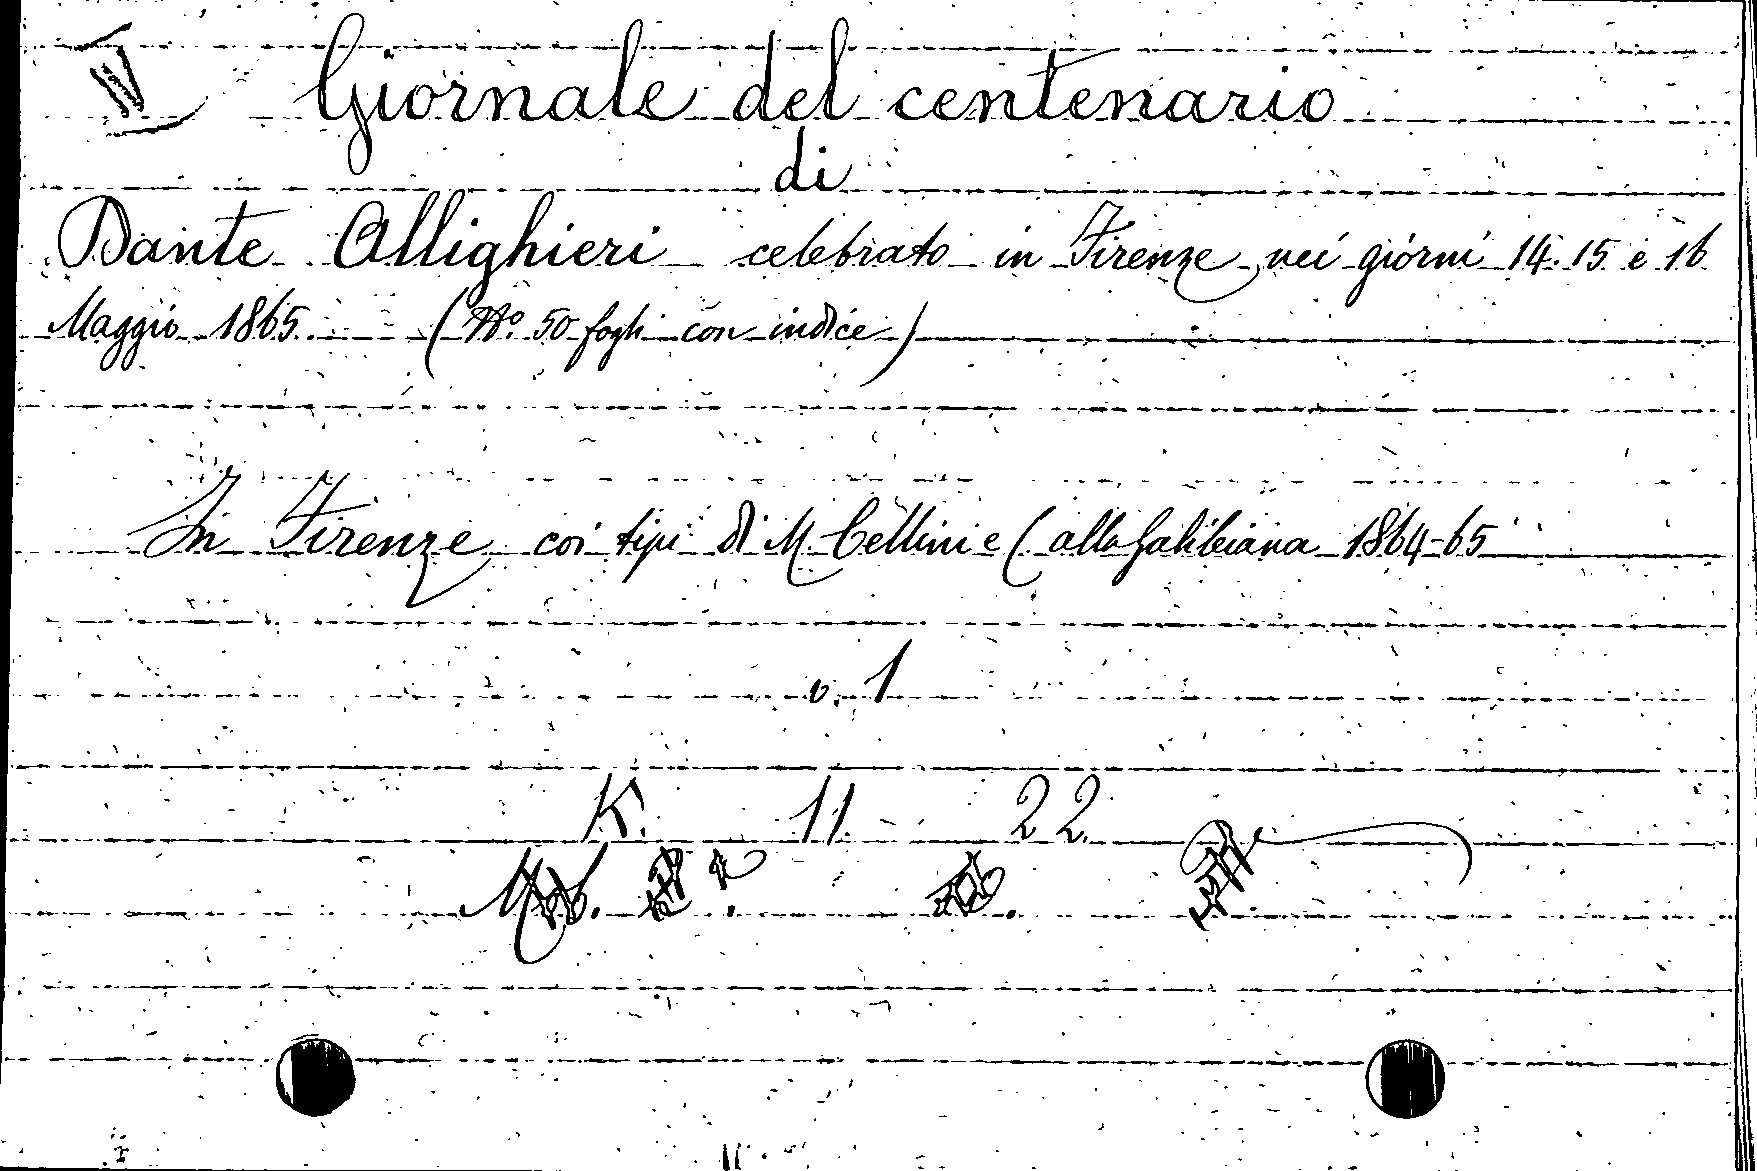 Giornale del centenario
di
Dante Allighieri celebrato in Firenze nei giorni 14. 15 e 16
Maggio 1865 (No. 50 fogli con indice)
In Firenze coi tipi di M. Cellini e C alla Galileiana 1864-65
v. 1
K. 11. 22.